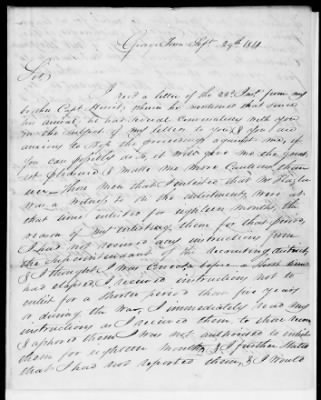 George Town Sept 29th 1814
Sir
I recd a letter of the 28th Inst from my
brother Capt. , which he mentioned that since
his arrival, he had several conversations with you
on the subject of my letters to you, & you are
anxious to stop the proceedings against me, if
you can possibly do it, it will give me the great
est pleasure & make me more cautious in
Three men that I enlisted that Mr
was a witness to the enlistments, were at
that time enlisted for eighteen months, the
reason of my enlisting them for that period
I had not received any instructions from
the Superintendant of the recruiting district
& I thought I was correct, before a
had elapsed, I received instructions not to
enlist for a shorter period than five years
or during the war, I immediately read my
instructions as I received them, to that
I apprized them I was not authorised to enlist
them for eighteen months, & I further stated
that I had not reported them, & I would